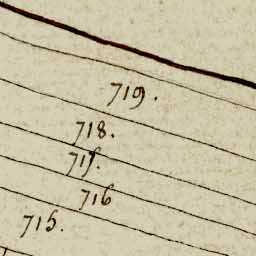 719.
718.
717.
716
715.